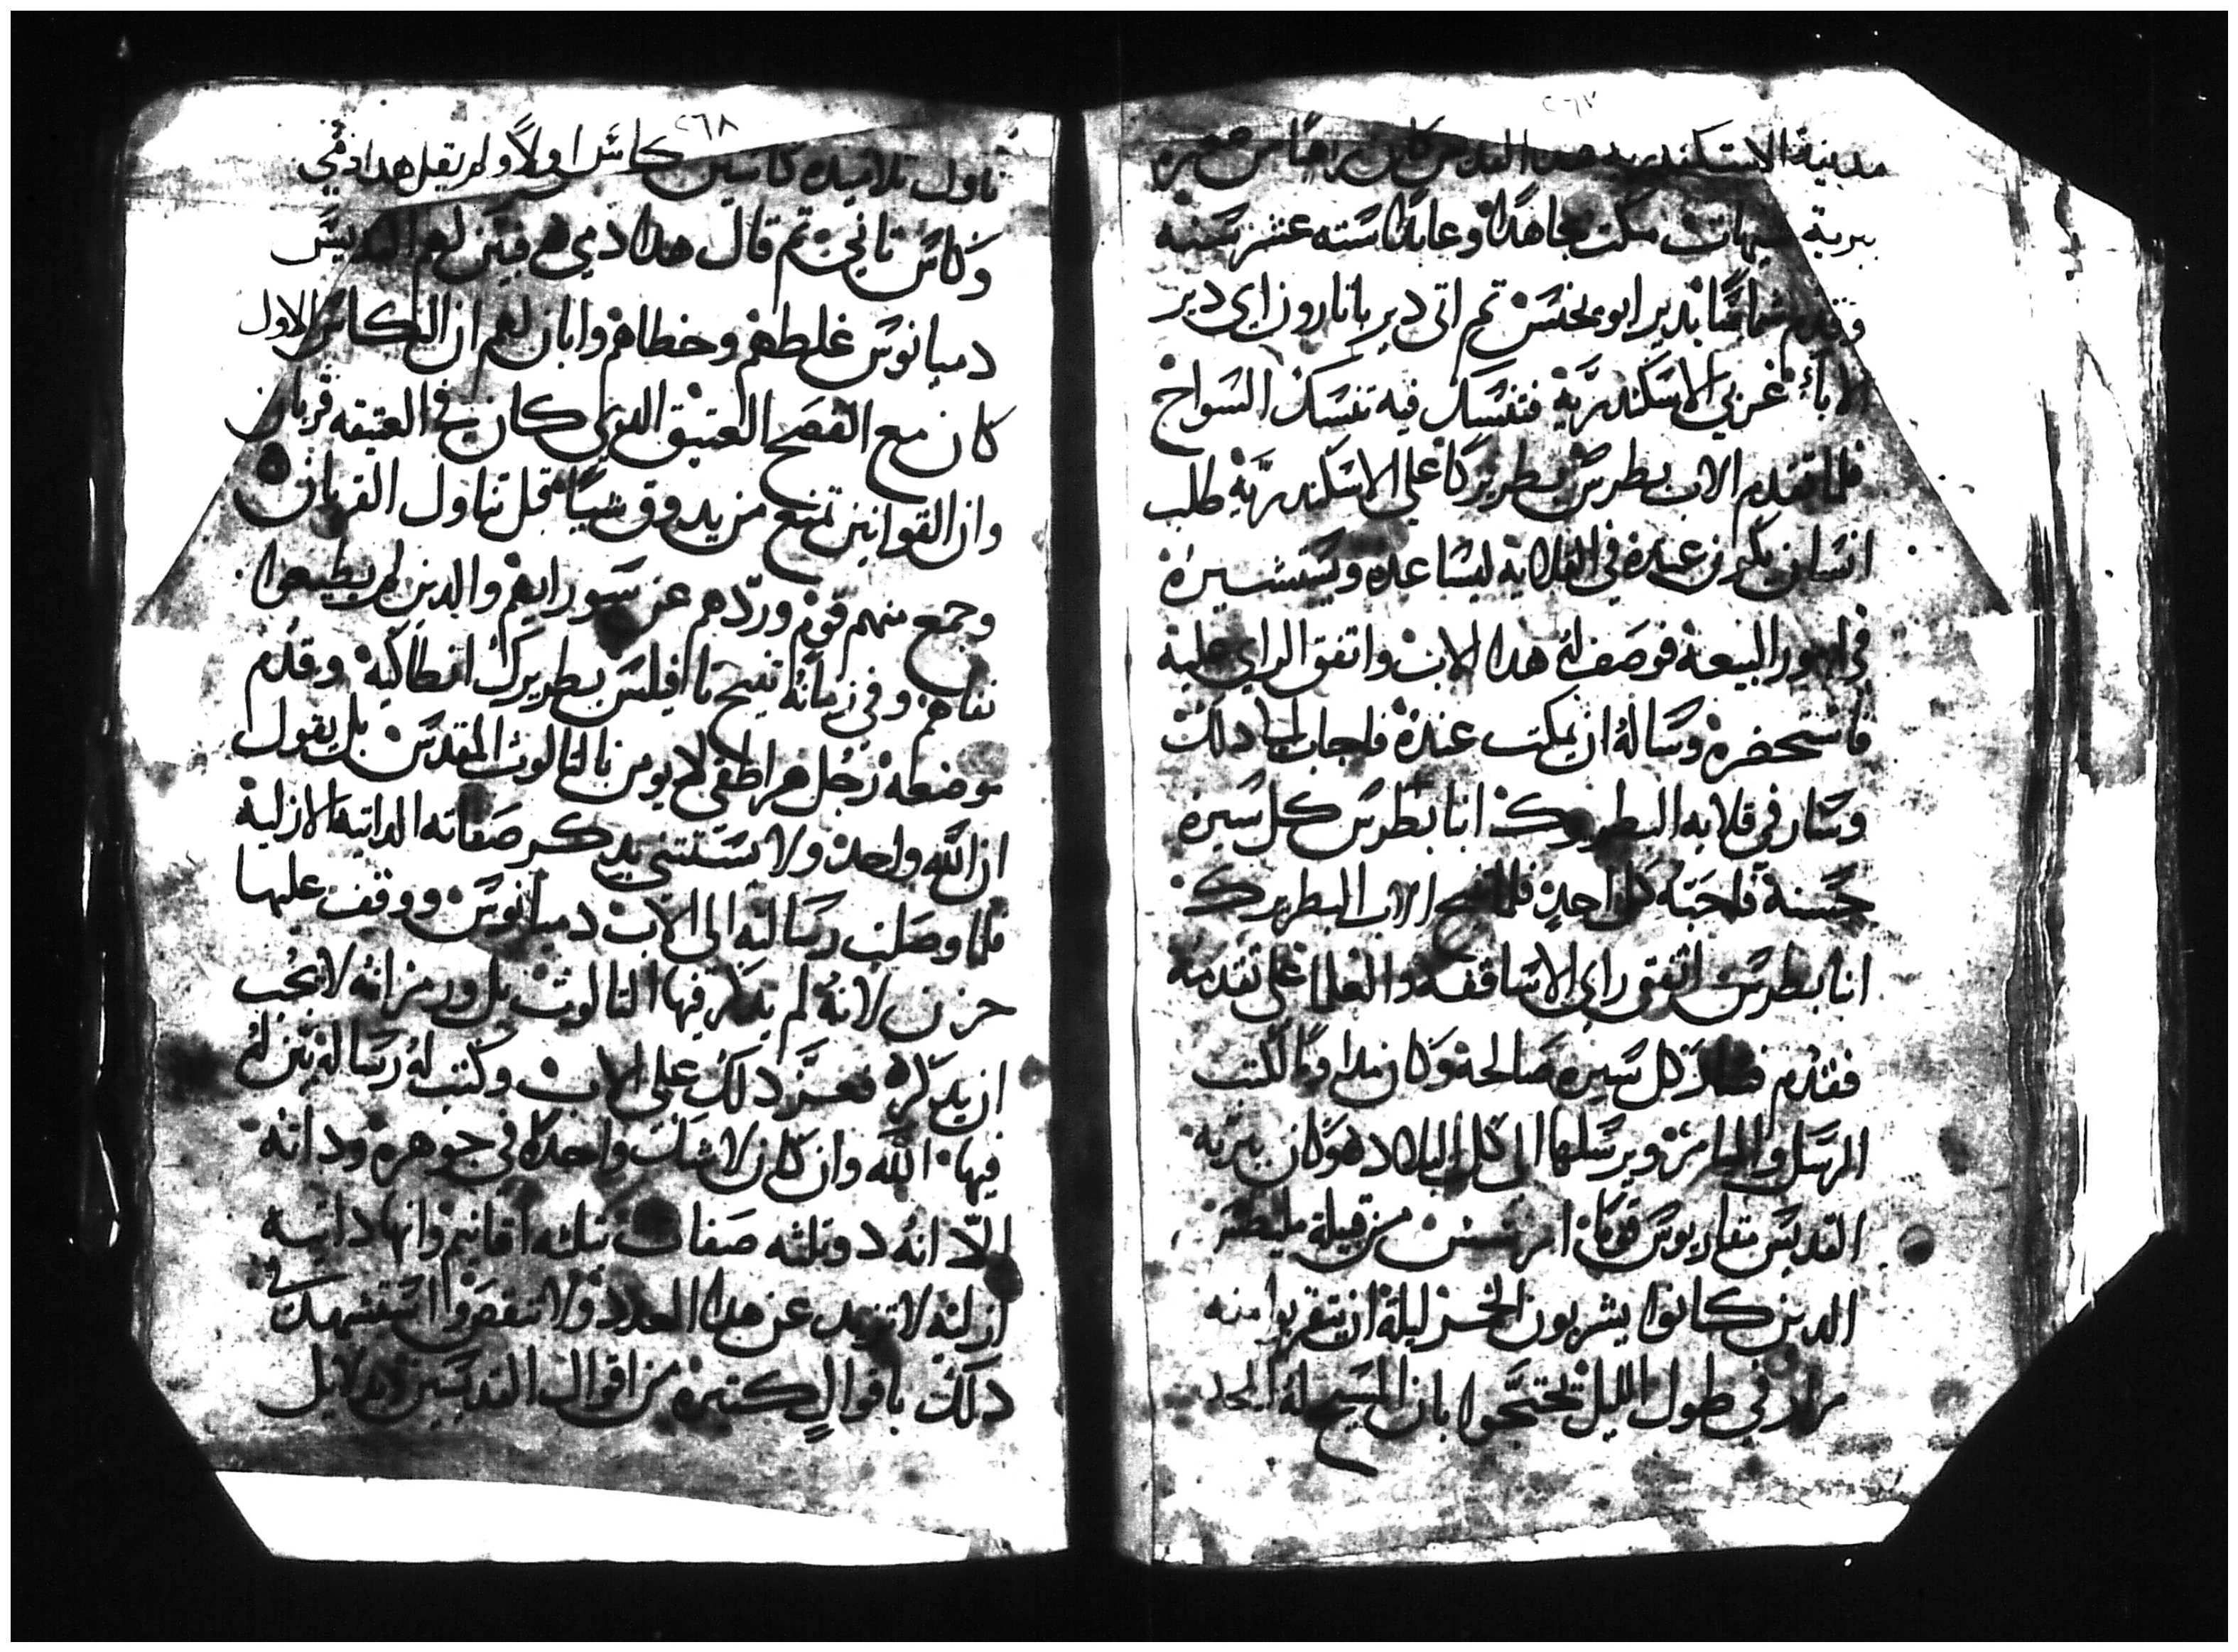 ٢٦٧
مدينة الاسكندريه هدا القديس كان راهبًا من صغره
ببرية شيهات مكت مجاهدًا وعابدًا سته عشر سنه
وقدم شماسًا بدير ابو يحنس تم اتى دير باتارون اي دير
الاباء غربي الاسكندريّة فتنسك فيه تنسك السواح
فلما تقدم الاب بطرس بطريركًا علي الاسكندريّة طلب
انسان يكون عنده في القلاية ليساعده ويستشيره
في امور البيعة فوصف له هدا الاب واتفق الراي عليه
فاستحضره وساله ان يمكت عنده فاجاب الي دلك
وسار في قلايه البطريرك انبا بطرس كل سيره
حسنة فاحبّه كل احد فلما تنيح الاب البطريرك
انبا بطرس اتفق راي الاساقفه والعلما على تقدمته
فقدم فسار كل سيره صالحة وكان مداومًا لكتب
الرسل والميامر ويرسلها الى كل البلاد هو وكان ببرية
القديس مقاريوس قوم من قبيلة مليطس
الدين كانوا يشربون الخمر ليلة ان يتقربوا منه
مرار في طول الليل تحتجوا بان المسيح له المجد
٢٦٨
ناول تلاميده كاسين كاس اولاً ولم يقل هدا دمي
وكاس تاني تم قال هدا دمي فبيّن لهم القديس
دميانوس غلطهم وخطاهم وابان لهم ان الكاس الاول
كان مع الفصح العتيق الدي كان في العتيقه قربان
وان القوانين تمنع من يدوق شيًا قبل تناول القربان
وجمع منهم قوم وردّهم عن سو رايهم والدين لم يطيعوا
نفاهم وفي زمانه تنيح تاافيلس بطريرك انطاكية وقدم
موضعه رجل هراطقي لا يومن بالتالوت المقدس بل يقول
ان الله واحد ولا نستتني بدكر صفاته الداتيه الازلية
فلما وصلت رسالته الى الاب دميانوس ووقف عليها
حزن لانه لم يدكر فيها التالوت بل ورمز انه لا يجب
ان يدكره فعسر دلك على الاب وكتب له رساله بيّن له
فيها الله وان كان لا شك واحدًا في جوهره وداته
الّا انه دو تلته صفات تلته اقانيم وانها داتيه
ازليه لا تزيد عن هدا العدد ولا تنقص واستشهد في
دلك باقوال كتيره من اقوال القديسين وبدلايل